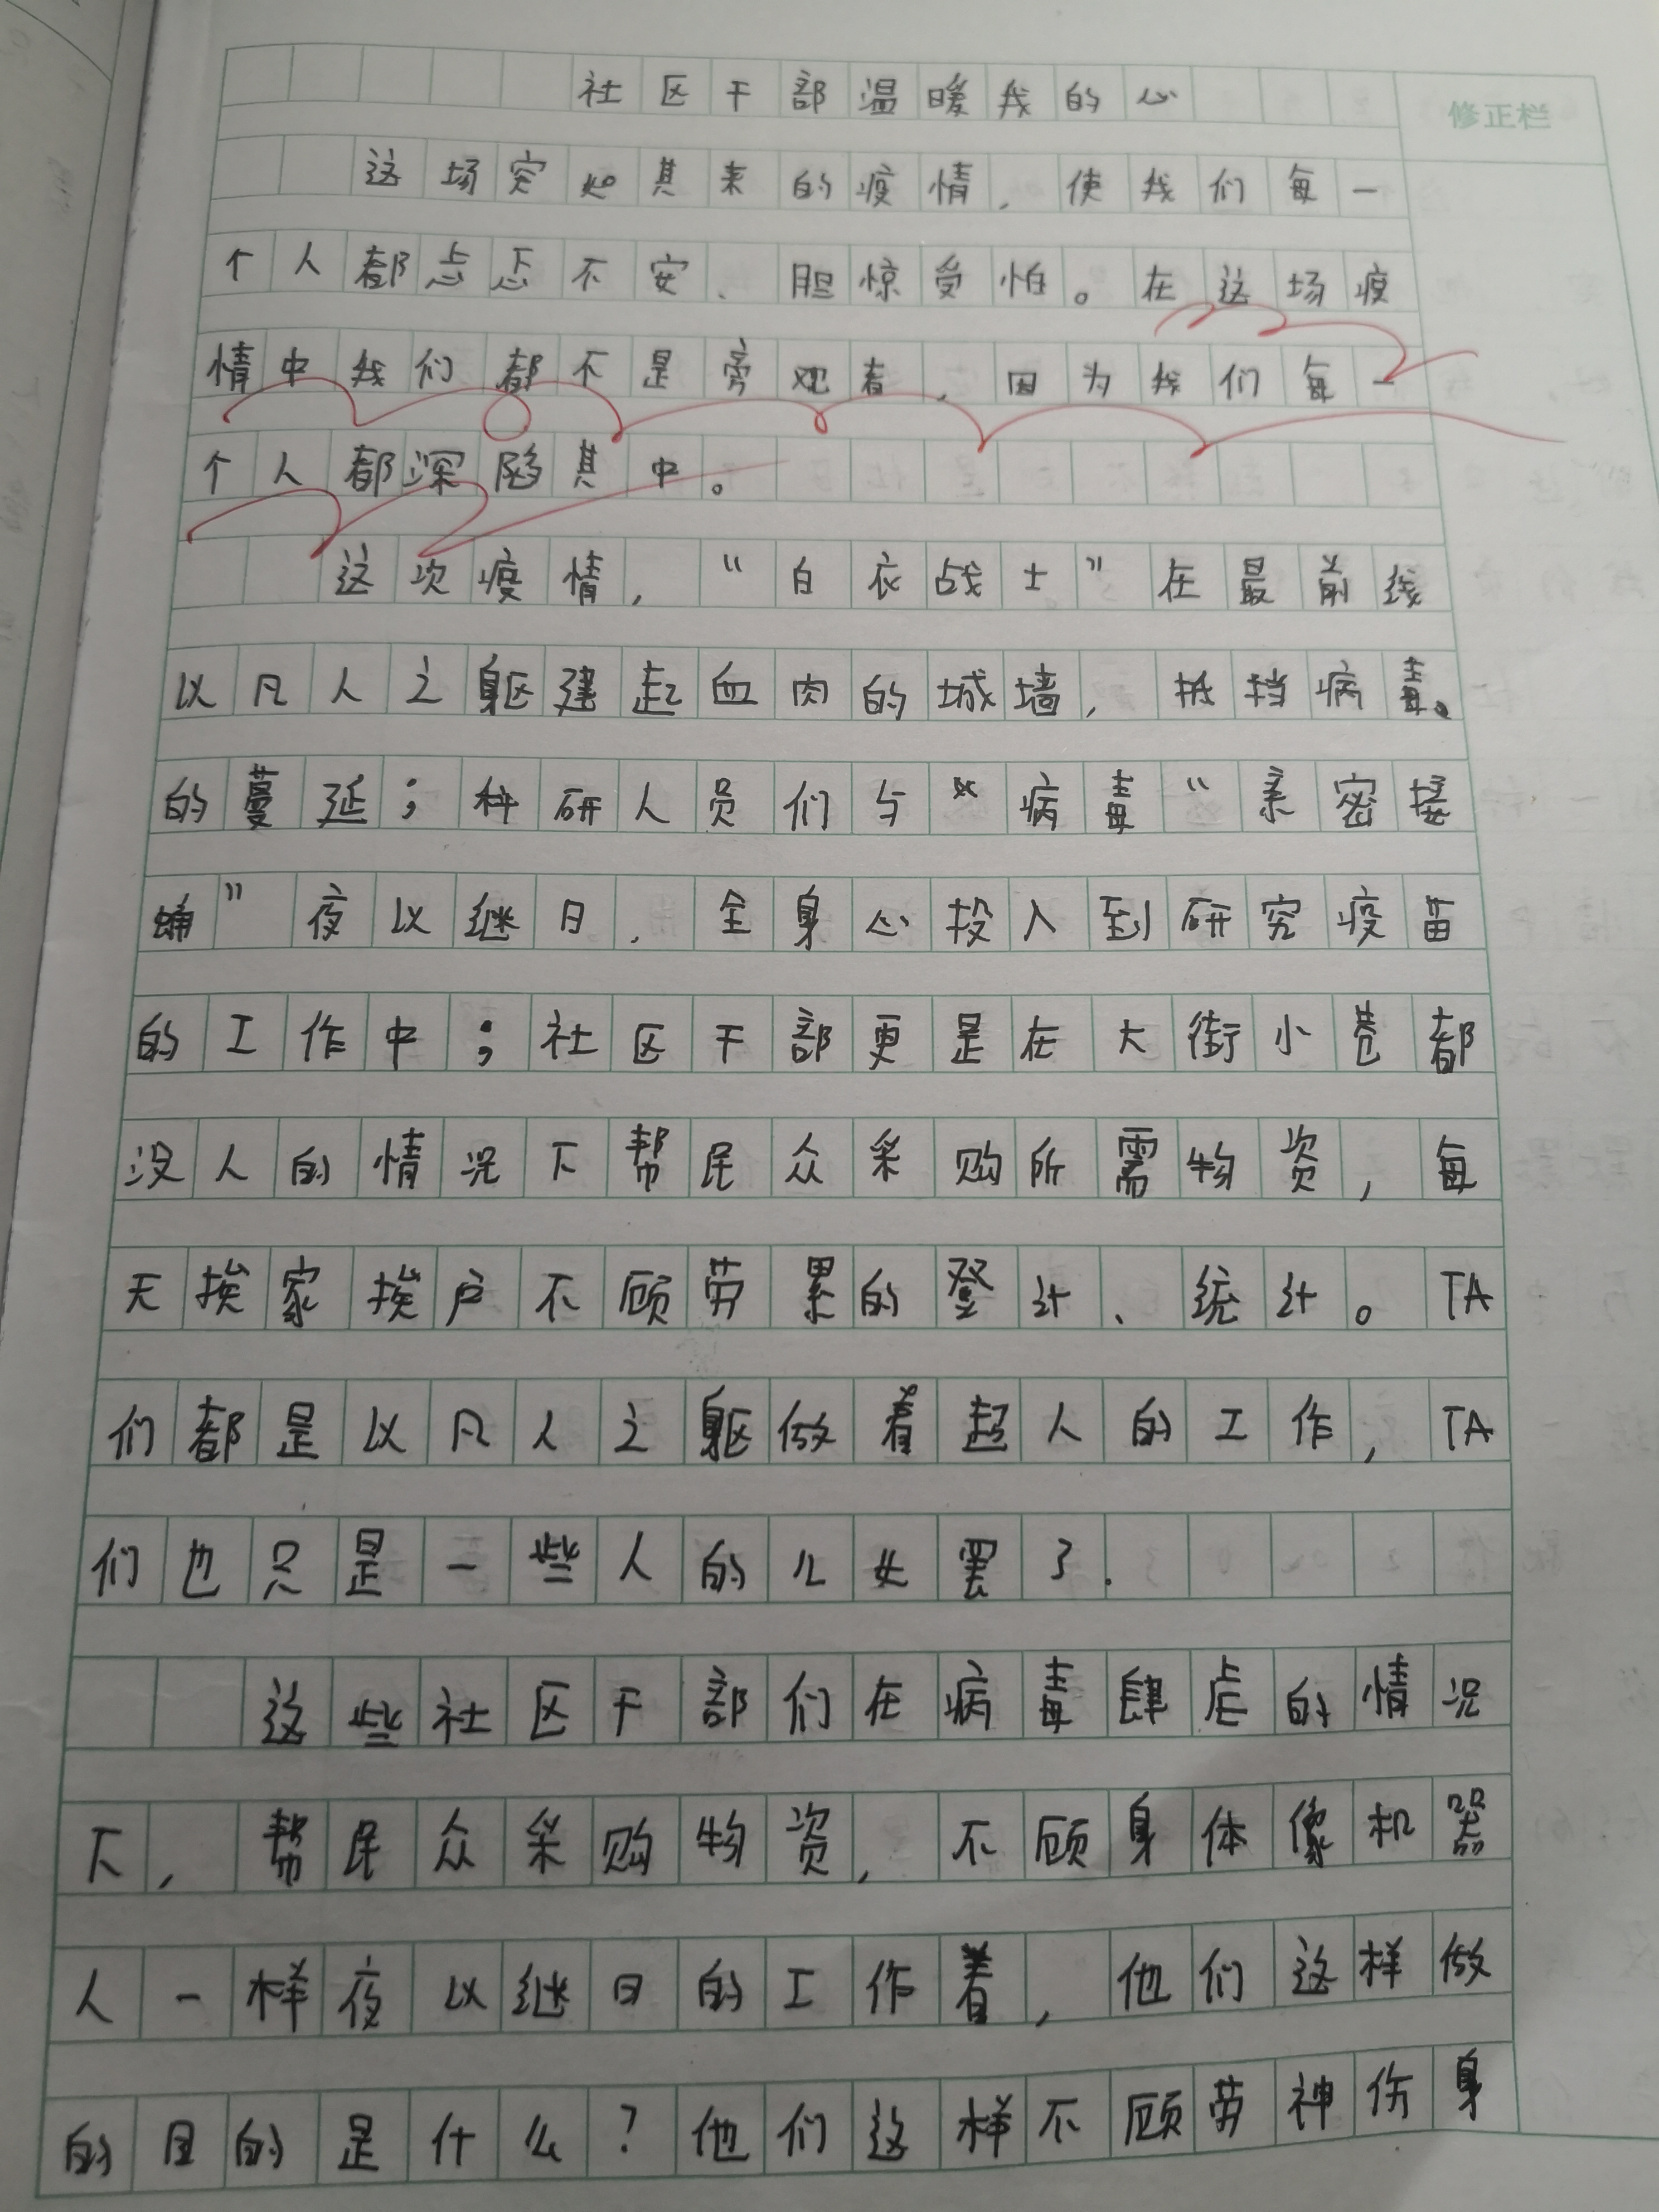 社区干部温暖我的心
修正栏
这场突如其来的疫情，使我们每一
个人都忐忑不安、胆惊受怕。在这场疫
情中我们都不是旁观者，因为我们每一
个人都深陷其中。
这次疫情，“白衣战士”在最前线
以凡人之躯建起血肉的城墙，抵挡病毒。
的蔓延；科研人员们与“病毒“亲密接
触”夜以继日，全身心投入到研究疫苗
的工作中；社区干部更是在大街小巷都
没人的情况下帮民众采购所需物资，每
天挨家挨户不顾劳累的登计、统计。TA
们都是以凡人之躯做着超人的工作，TA
们也只是一些人的儿女罢了.
这些社区干部们在病毒肆虐的情况
下，帮民众采购物资，不顾身体像机器
人一样夜以继日的工作着，他们这样做
的目的是什么？他们这样不顾劳神伤身